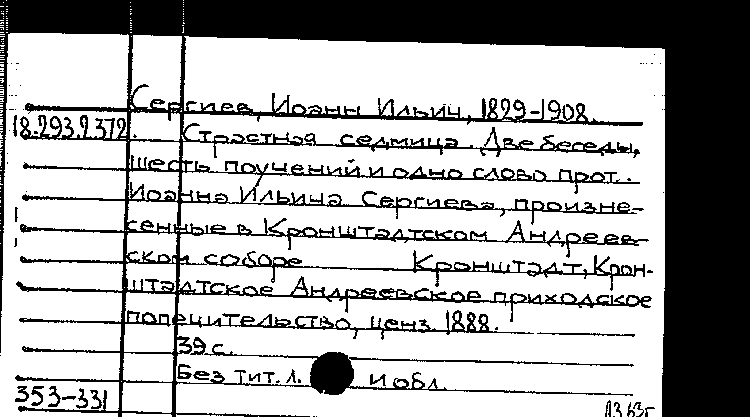 Сергиев, Иоанн Ильич, 1829-1908.
18.293.2.372. Страстная седмица. Две беседы,
шесть поучений и одно слово прот.
Иоанна Ильича Сергиева, произне-
сенные в Кронштадтском Андреев-
ском соборе Кронштадт, Крон-
штадтское Андреевское приходское
попечительство, ценз. 1888.
39 с.
Без тит. л. и обл.
353-331